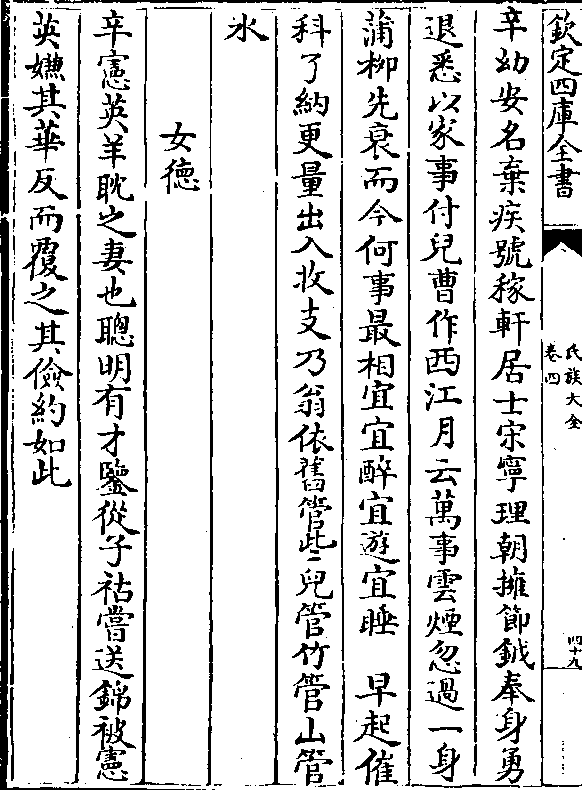 欽定四庫全書
氏族大全
卷四
四十九
辛幼安名棄疾號稼軒居士宋寧理朝擁節鉞奉身勇
退悉以家事付兒曹作西江月云萬事雲煙忽過一身
蒲柳先衰而今何事最相宜宜醉宜遊宜睡　早起催
科了納更量出入收支乃翁依舊管些兒管竹管山管
水
女德
辛憲英羊耽之妻也聰明有才鑒從子祜嘗送錦被憲
英嫌其華反而覆之其儉約如此